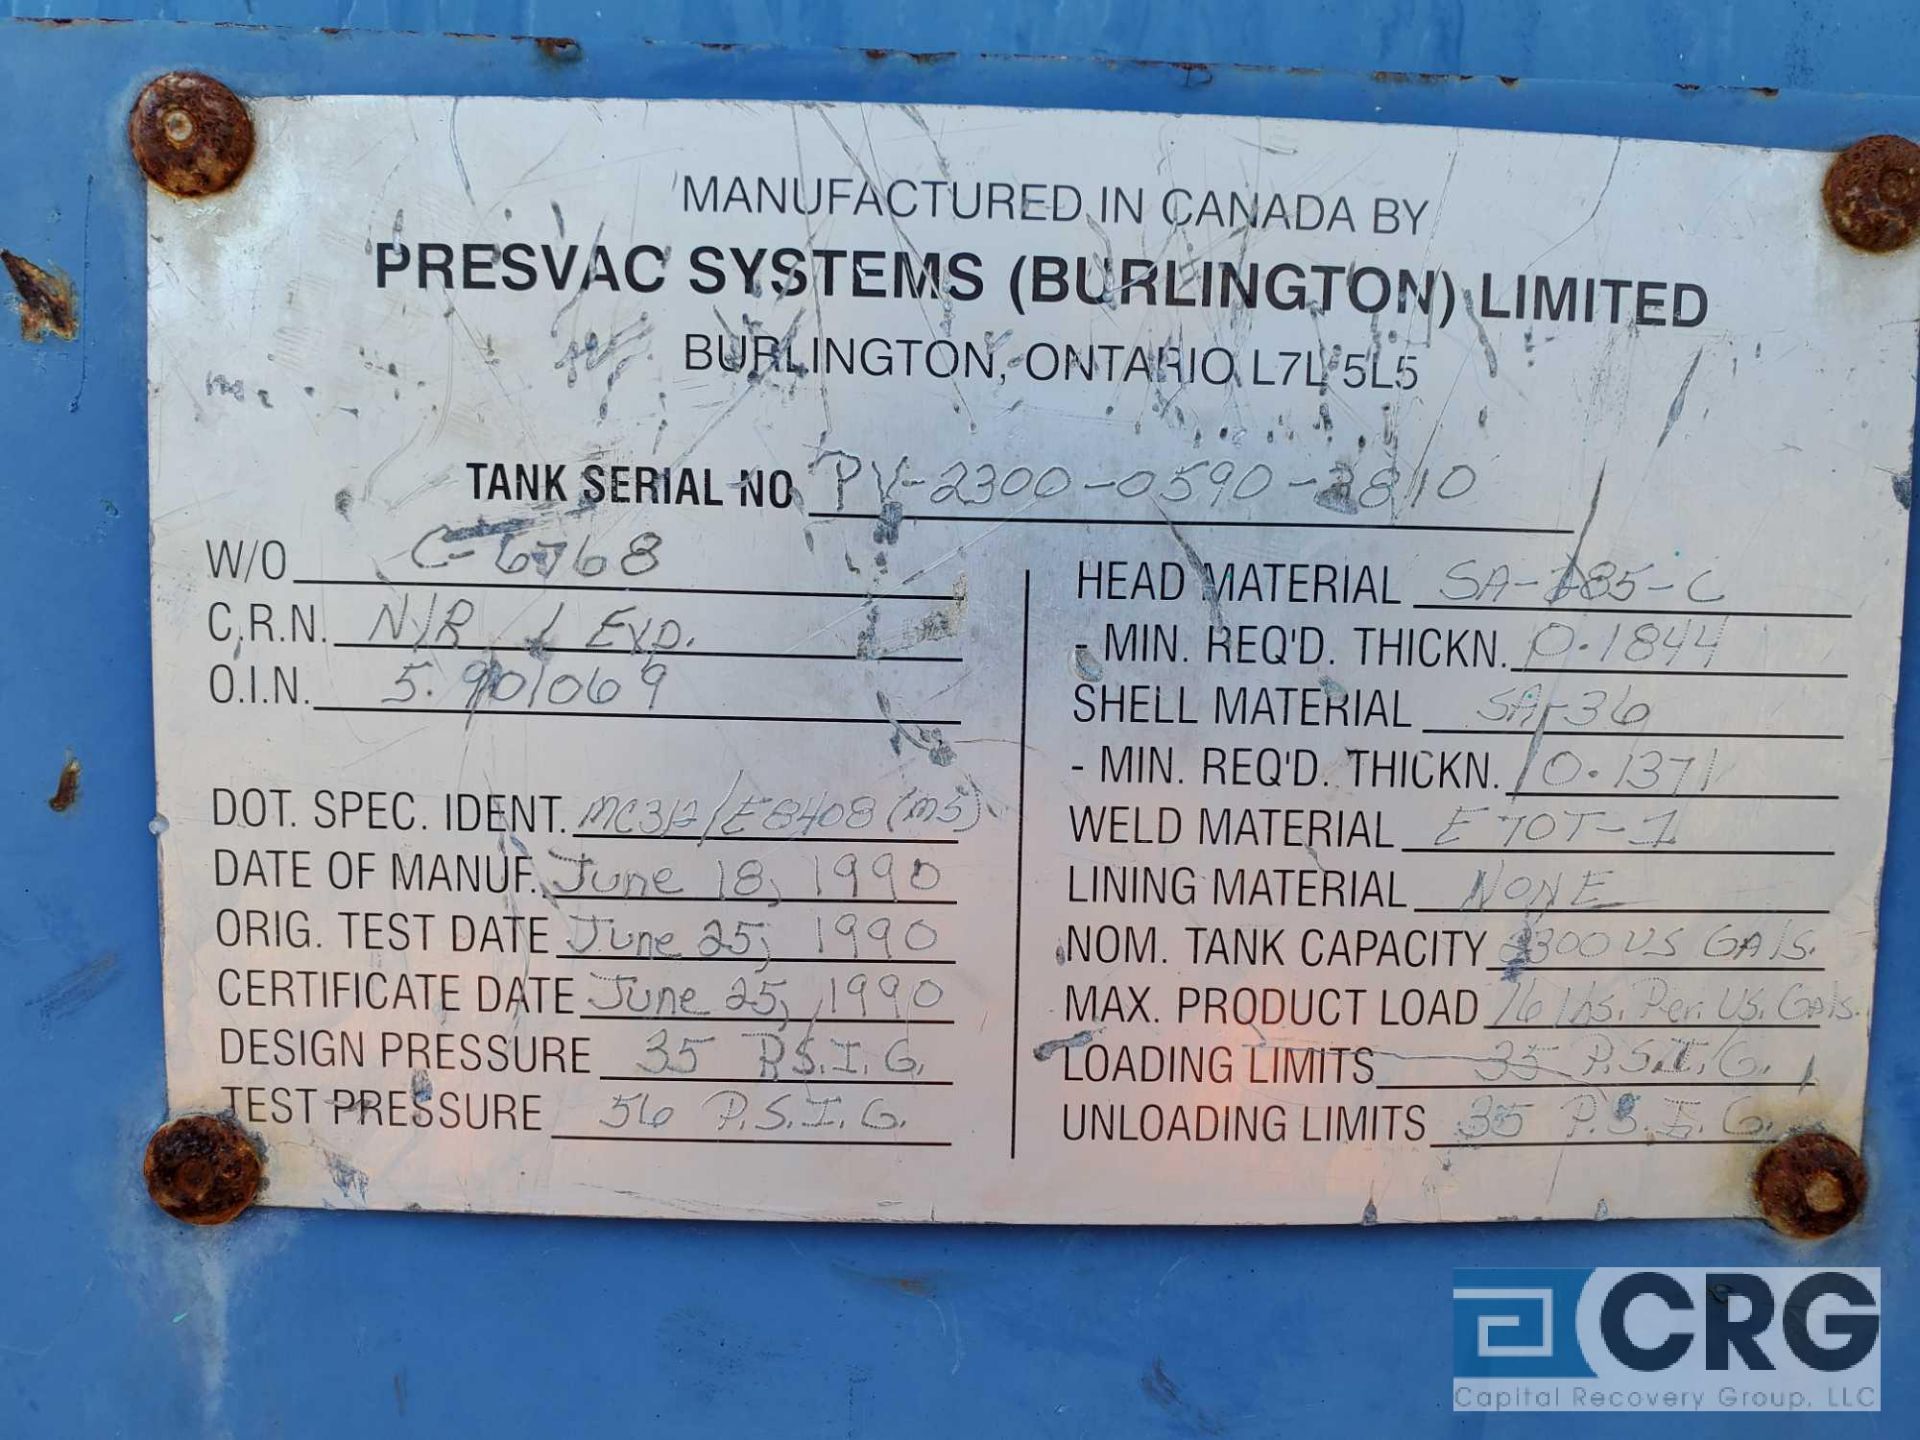 MANUFACTURED IN CANADA BY
PRESVAC SYSTEMS (BURLINGTON) LIMITED
BURLINGTON, ONTARIO L7L 5L5
TANK SERIAL NO PV-2300-0590-3810
W/O C-6768
C.R.N. N/R / EXP.
O.I.N. 5.901069
DOT. SPEC. IDENT. MC312/E8408 (MS)
DATE OF MANUF. June 18, 1990
ORIG. TEST DATE June 25, 1990
CERTIFICATE DATE June 25, 1990
DESIGN PRESSURE 35 P.S.I.G.
TEST PRESSURE 56 P.S.I.G.
HEAD MATERIAL SA-285-C
- MIN. REQ'D. THICKN. 0.1844
SHELL MATERIAL SA-36
- MIN. REQ'D. THICKN. 0.1371
WELD MATERIAL E70T-1
LINING MATERIAL NONE
NOM. TANK CAPACITY 2300 US GAls.
MAX. PRODUCT LOAD 16 lbs. Per. US. GAls.
LOADING LIMITS 35 P.S.I.G.
UNLOADING LIMITS 35 P.S.I.G.
CRG
Capital Recovery Group, LLC